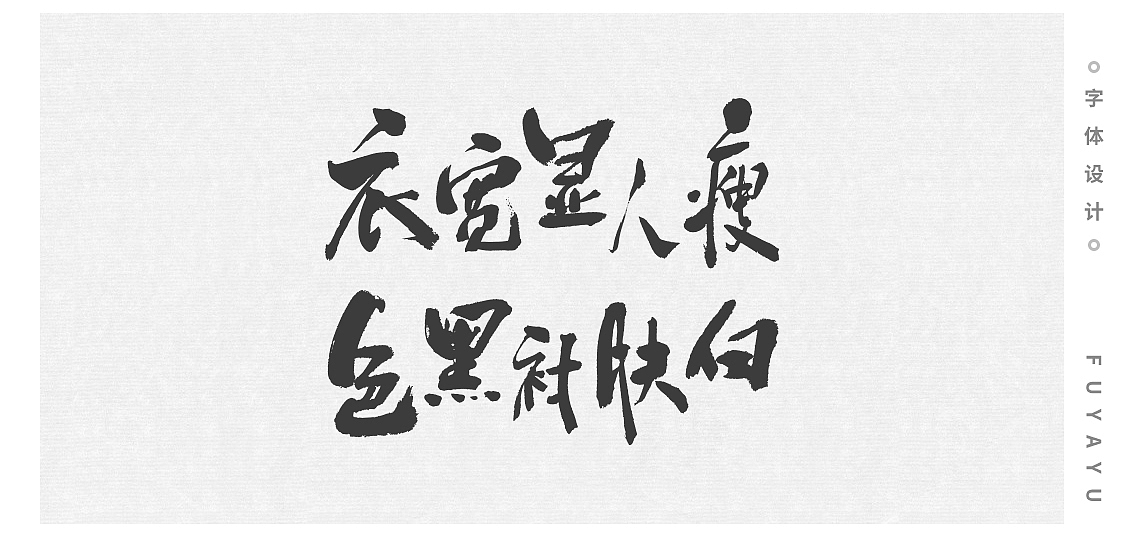 衣宽显人瘦
色黑衬肤白
字体设计
FUYAYU